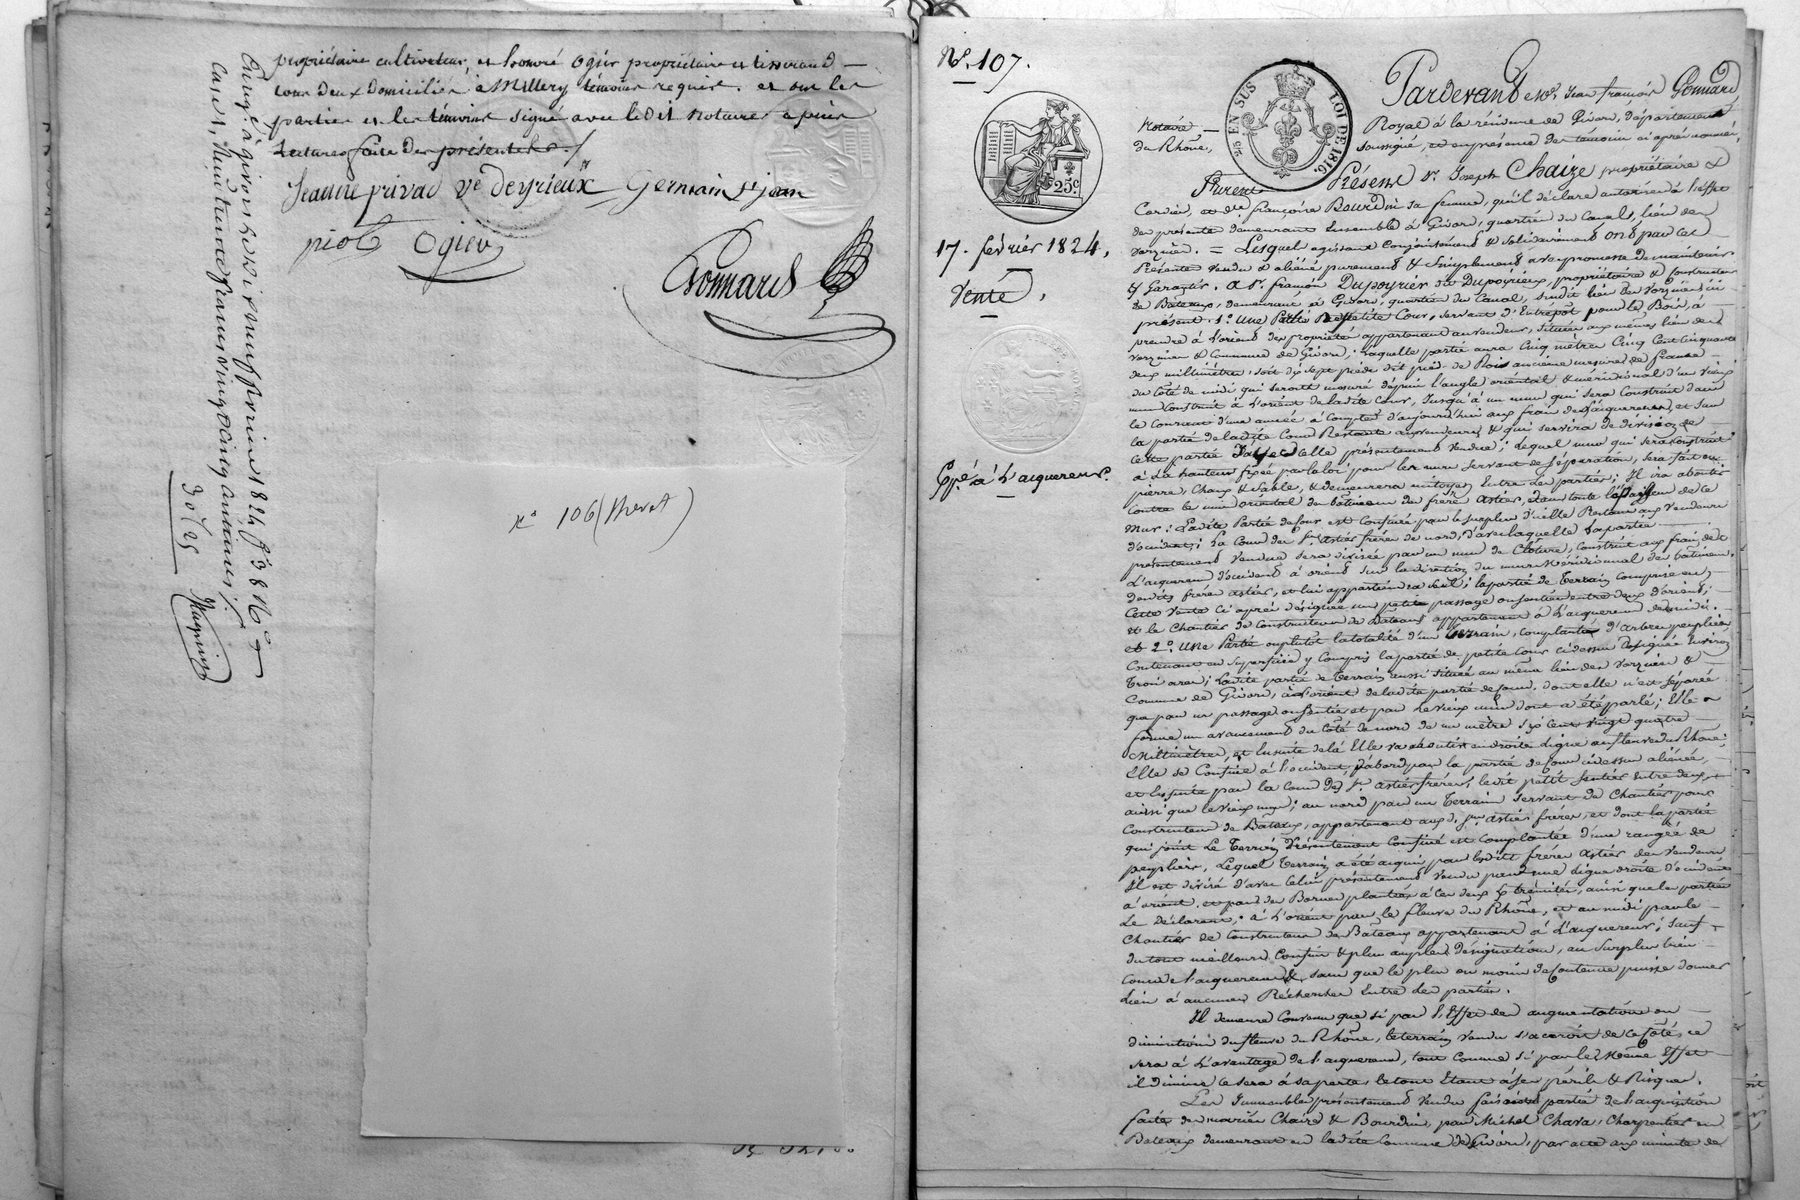 propriétaire cultivateur, et honoré Ogier propriétaire et tisserand —
tous deux domiciliés à Millery témoins requis. et ont les
parties et les témoins signé avec ledit notaire après
Lecture faite des présentes./.
Jeanne privas Ve Deyrieux Germain st jean
piot Ogier
Gonnard
Enrgé à givors le dix neuf février 1824 fo 38 No
Case 1, Reçu trente francs vingt cinq centimes
30f 25
No 106 (Brevet)
No. 107.
25 EN SUS
LOI DE 1816.
25c
17. février 1824,
Vente,
Expé. à L'acquereur.
Pardevant Me Jean françois Gonnard
Notaire — Royal à la résidence de Givors, département
du Rhône, soussigné, et en présence des témoins ci après nommés,
Furent Présens sr. Joseph Chaize propriétaire &
Cordier, et dlle françoise Bourdin sa femme, qu'il déclare autoriser à l'effet
des présentes demeurant ensemble à Givors, quartier du Canal, lieu des
Vorzines. = Lesquels agissant conjointement & solidairement ont par ces
Présentes vendu & aliéné purement & simplement avec promesse de maintenir
& Garantir. à Sr. françois Dupoyrier ou Dupéyrieux, propriétaire & constructeur
de Bâteaux, demeurant à Givors, quartier du Canal, susdit lieu des Vorzines ici
présent. 1o. Une Partie de petite Cour, servant d'Entrepôt pour le Bois, à
prendre à l'orient des propriétés appartenant aux vendeurs, située aux mêmes lieu des
vorzines & Commune de Givors; laquelle partie aura cinq mètres cinq cent cinquante
deux millimètres, soit dix sept pieds dit pied de Roi ancienne mesure de france —
du côté de midi qui seront mesurés depuis l'angle oriental & méridional d'un vieux
mur construit à l'orient de ladite cour, jusqu'à un mur qui sera construit dans
le courant d'une année à compter d'aujourd'hui aux frais de l'acquereur, et sur
la partie de ladite Cour Restante aux vendeurs & qui servira de division de
cette partie d'avec celle présentement vendue; lequel mur qui sera construit
à la hauteur fixée par la loi pour les murs servant de séparation, sera fait en
pierre, Chaux & sable, & demeurera mitoyen entre les parties; Il ira aboutir
contre le mur oriental du bâtiment des frères Astier, dans toute l'épaisseur de ce
Mur: Ladite Partie de Cour est confinée par le surplus d'icelle Restant aux vendeurs
d'occident; la Cour des Srs. Astier frères de nord, d'avec laquelle la partie —
présentement vendue sera divisée par un mur de Clôture, construit aux frais de
L'acquereur d'occident à orient sur la direction du mur Méridional du bâtiment
desdits frères Astier, et lui appartiendra seul; la partie de Terrain comprise en
cette vente ci après désignée un petit passage ou sentier entre deux d'orient;
et le Chantier de constructeur de Bâteaux appartenant à L'acquereur de midi.
et 2o. Une Partie ou plutôt la totalité d'un terrain, complanté d'arbres peupliers
Contenant en superficie y compris la partie de petite Cour ci dessus désignée environ
Trois ares; ladite partie de Terrain aussi située au même lieu des vorzines &
Commune de Givors, à l'orient de ladite partie de Cour, dont elle n'est séparée
que par un passage ou sentier et par le vieux mur dont a été parlé; Elle —
forme un avancement du côté de nord de un mètre six cent vingt quatre —
Millimètres, et ensuite de là Elle va aboutir en droite ligne au fleuve du Rhône;
Elle se confine à l'occident, d'abord par la partie de Cour ci dessus aliénée,
et Ensuite par la cour des Srs. Astier frères, ledit petit sentier entre deux,
ainsi que le vieux mur; au nord par un Terrain servant de Chantier pour
Constructeur de Bâteaux, appartenant auxd. Srs Astier frères, et dont la partie
qui joint Le Terrain Présentement confiné est complantée d'une rangée de
peupliers, Lequel Terrain a été acquis par lesdits frères Astier des vendeurs
Il est divisé d'avec celui présentement vendu par une ligne droite d'occident
à orient, et par des Bornes plantées à ses deux Extrémités, ainsi que les parties
Le Déclarent,. à L'orient par le fleuve du Rhône, et au midi par le —
Chantier de Constructeur de Bâteaux appartenant à L'acquereur; Sauf
de tous meilleurs Confins & plus amples désignations, au surplus bien —
connus de l'acquereur &, sans que le plus ou moins de Contenue puisse donner
Lieu à aucunes Recherches Entre les parties.
Il demeure Convenu que si par l'Effet des augmentations ou —
diminutions du fleuve du Rhône, le terrain vendu s'accroit de ce Côté, ce
sera à L'avantage de l'acquereur, tout comme si par le Même Effet
il diminue ce sera à sa perte, le tout étant à ses périls & Risques.
Les Immeubles présentement vendus faisaient partie de l'acquisition
faite des mariés Chaize & Bourdin, par Michel Chara, Charpentier en
Bateaux demeurant en ladite Commune de Givors, par acte aux minutes de